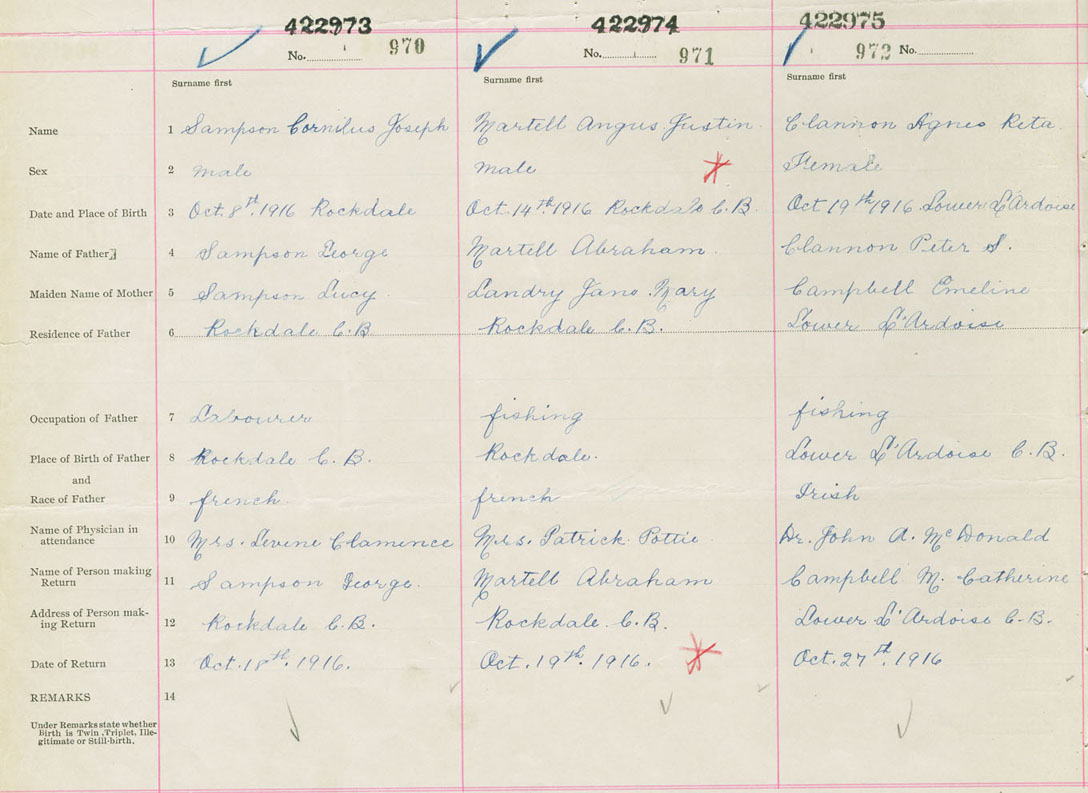 422973 422974 422975
No. 970 No. 971 972 No.
Surname first Surname first Surname first
Name 1 Sampson Cornilus Joseph Martell Angus Justin Clannon Agnes Reta
Sex 2 male male Female
Date and Place of Birth 3 Oct. 8th. 1916 Rockdale Oct. 14th. 1916 Rockdale C.B. Oct 19th 1916 Lower L'Ardoise
Name of Father 4 Sampson George Martell Abraham. Clannon Peter S.
Maiden Name of Mother 5 Sampson Lucy Landry Jane Mary Campbell Emeline
Residence of Father 6 Rockdale C.B Rockdale C.B. Lower L'Ardoise
Occupation of Father 7 Labourer fishing fishing
Place of Birth of Father 8 Rockdale C.B. Rockdale. Lower L'Ardoise C.B.
and
Race of Father 9 french french Irish
Name of Physician in
attendance 10 Mrs. Levine Clamence Mrs. Patrick Pottie Dr. John A. McDonald
Name of Person making
Return 11 Sampson George. Martell Abraham Campbell M. Catherine
Address of Person mak-
ing Return 12 Rockdale C.B. Rockdale. C.B. Lower L'Ardoise C.B.
Date of Return 13 Oct. 18th. 1916. Oct. 19th. 1916. Oct. 27th. 1916
REMARKS 14
Under Remarks state whether
Birth is Twin, Triplet, Ille-
gitimate or Still-birth.